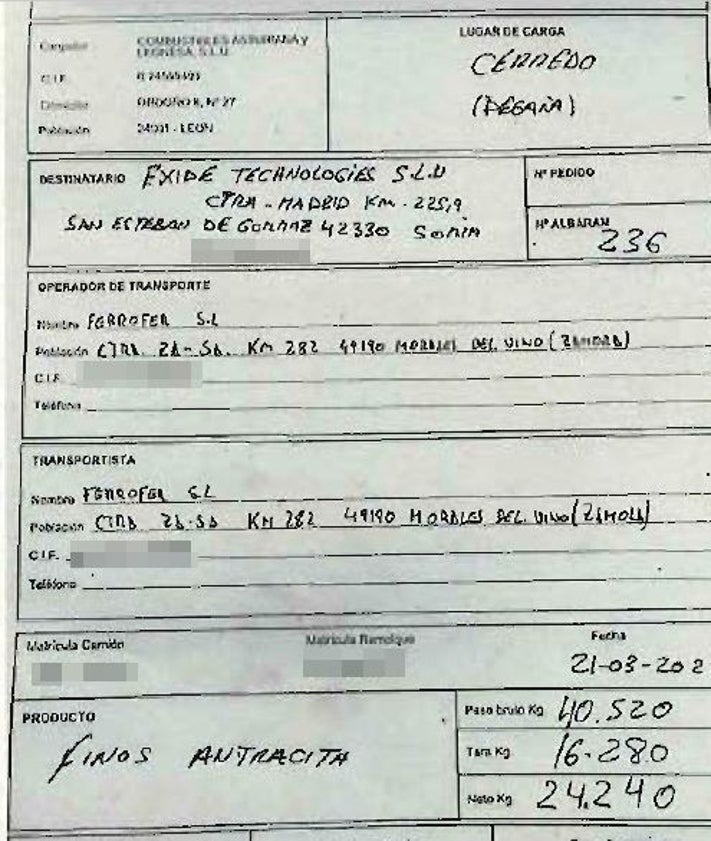 Cargador COMBUSTIBLES ASTURIANA y
LEONESA, S.L.U.
C.I.F.
Domicilio ORDOÑO II, Nº 27
Población 24001 - LEON
LUGAR DE CARGA
CERREDO
(DEGAÑA)
DESTINATARIO EXIDE TECHNOLOGIES S.L.U
CTRA - MADRID KM - 225,9
SAN ESTEBAN DE GORMAZ 42330 SORIA
Nº PEDIDO
Nº ALBARAN
236
OPERADOR DE TRANSPORTE
Nombre FERROFER S.L
Población CTRA. ZA-SA. KM 282 49190 MORALES DEL VINO (ZAMORA)
C.I.F.
Teléfono
TRANSPORTISTA
Nombre FERROFER SL
Población CTRA ZA-SA KM 282 49190 MORALES DEL VINO (ZAMORA)
C.I.F.
Teléfono
Matrícula Camión Matrícula Remolque Fecha
21-03-202
PRODUCTO
FINOS ANTRACITA
Peso bruto Kg 40.520
Tara Kg 16.280
Neto Kg 24.240